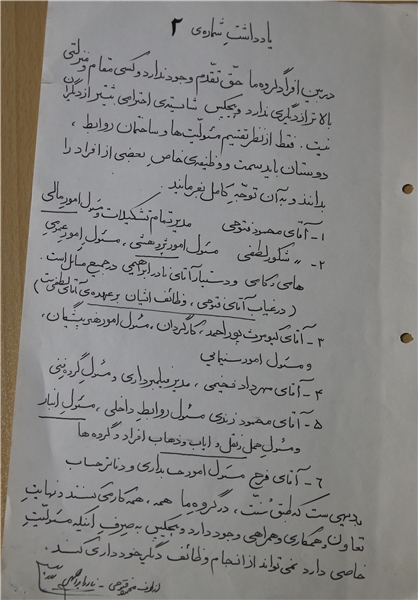 یادداشتِ شماره‌ی ۲
در بین افراد گروه ما حقّ تقدّم وجود ندارد و کسی مقام و منزلتی
بالاتر از دیگری ندارد و هیچکس شایسته‌ی احترامی بیشتر از دیگران
نیست. فقط از نظر تقسیم مسئولیّت‌ها و ساختمان روابط،
دوستان باید سمت و وظیفه‌ی خاصِ بعضی از افراد را
بدانند و به آن توجّهِ کامل بفرمایند.
۱- آقای محمود فتوحی مدیر تمام تشکیلات و مسئول امور مالی
۲- " شکور لطفی مسئول امور پژوهشی، مسئول امور عمومی
های و کاسی و دستیار آقای نادر ابراهیمی در جمیع مسائل است.
(در غیاب آقای فتوحی، وظائف ایشان بر عهده‌ی آقای لطفی‌ست)
۳- آقای کیومرث پوراحمد، کارگردان، مسئول امور هنرپیشگان،
و مسئول امور سینمایی
۴- آقای مهرداد فخیمی، مدیر فیلمبرداری و مسئول گروه فنی
۵- آقای محمود زندی مسئول روابط داخلی، مسئولِ انبار
و مسئول حمل و نقل و ایاب و ذهاب افراد و گروه‌ها
۶- آقای فرج مسئول امور حسابداری و دفاتر حساب
بدیهی‌ست که طبق سُنّت، در گروهِ ما همه، همه کار می‌کنند و نهایتِ
تعاون و همکاری و همراهی وجود دارد و هیچکس به صِرفِ اینکه مسئولیّتِ
خاصی دارد نمی‌تواند از انجام وظائف دیگر خودداری کند.
از طرف محمود فتوحی - نادر ابراهیمی